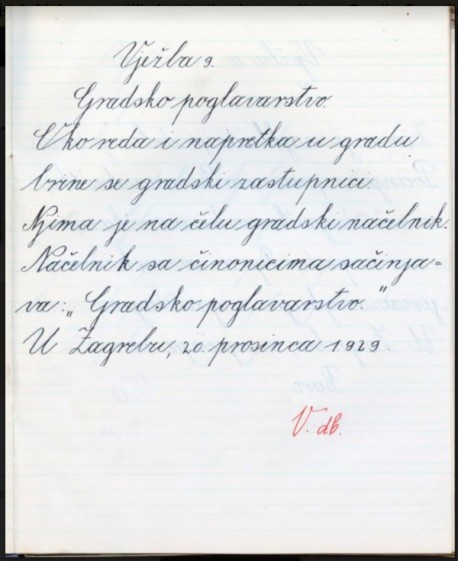 Vježba 9.
Gradsko poglavarstvo.
Oko reda i napretka u gradu
brine se gradski zastupnici.
Njima je na čelu gradski načelnik.
Načelnik sa činonicima sačinja-
va: „Gradsko poglavarstvo.”
U Zagrebu, 20. prosinca 1929.
V. db.